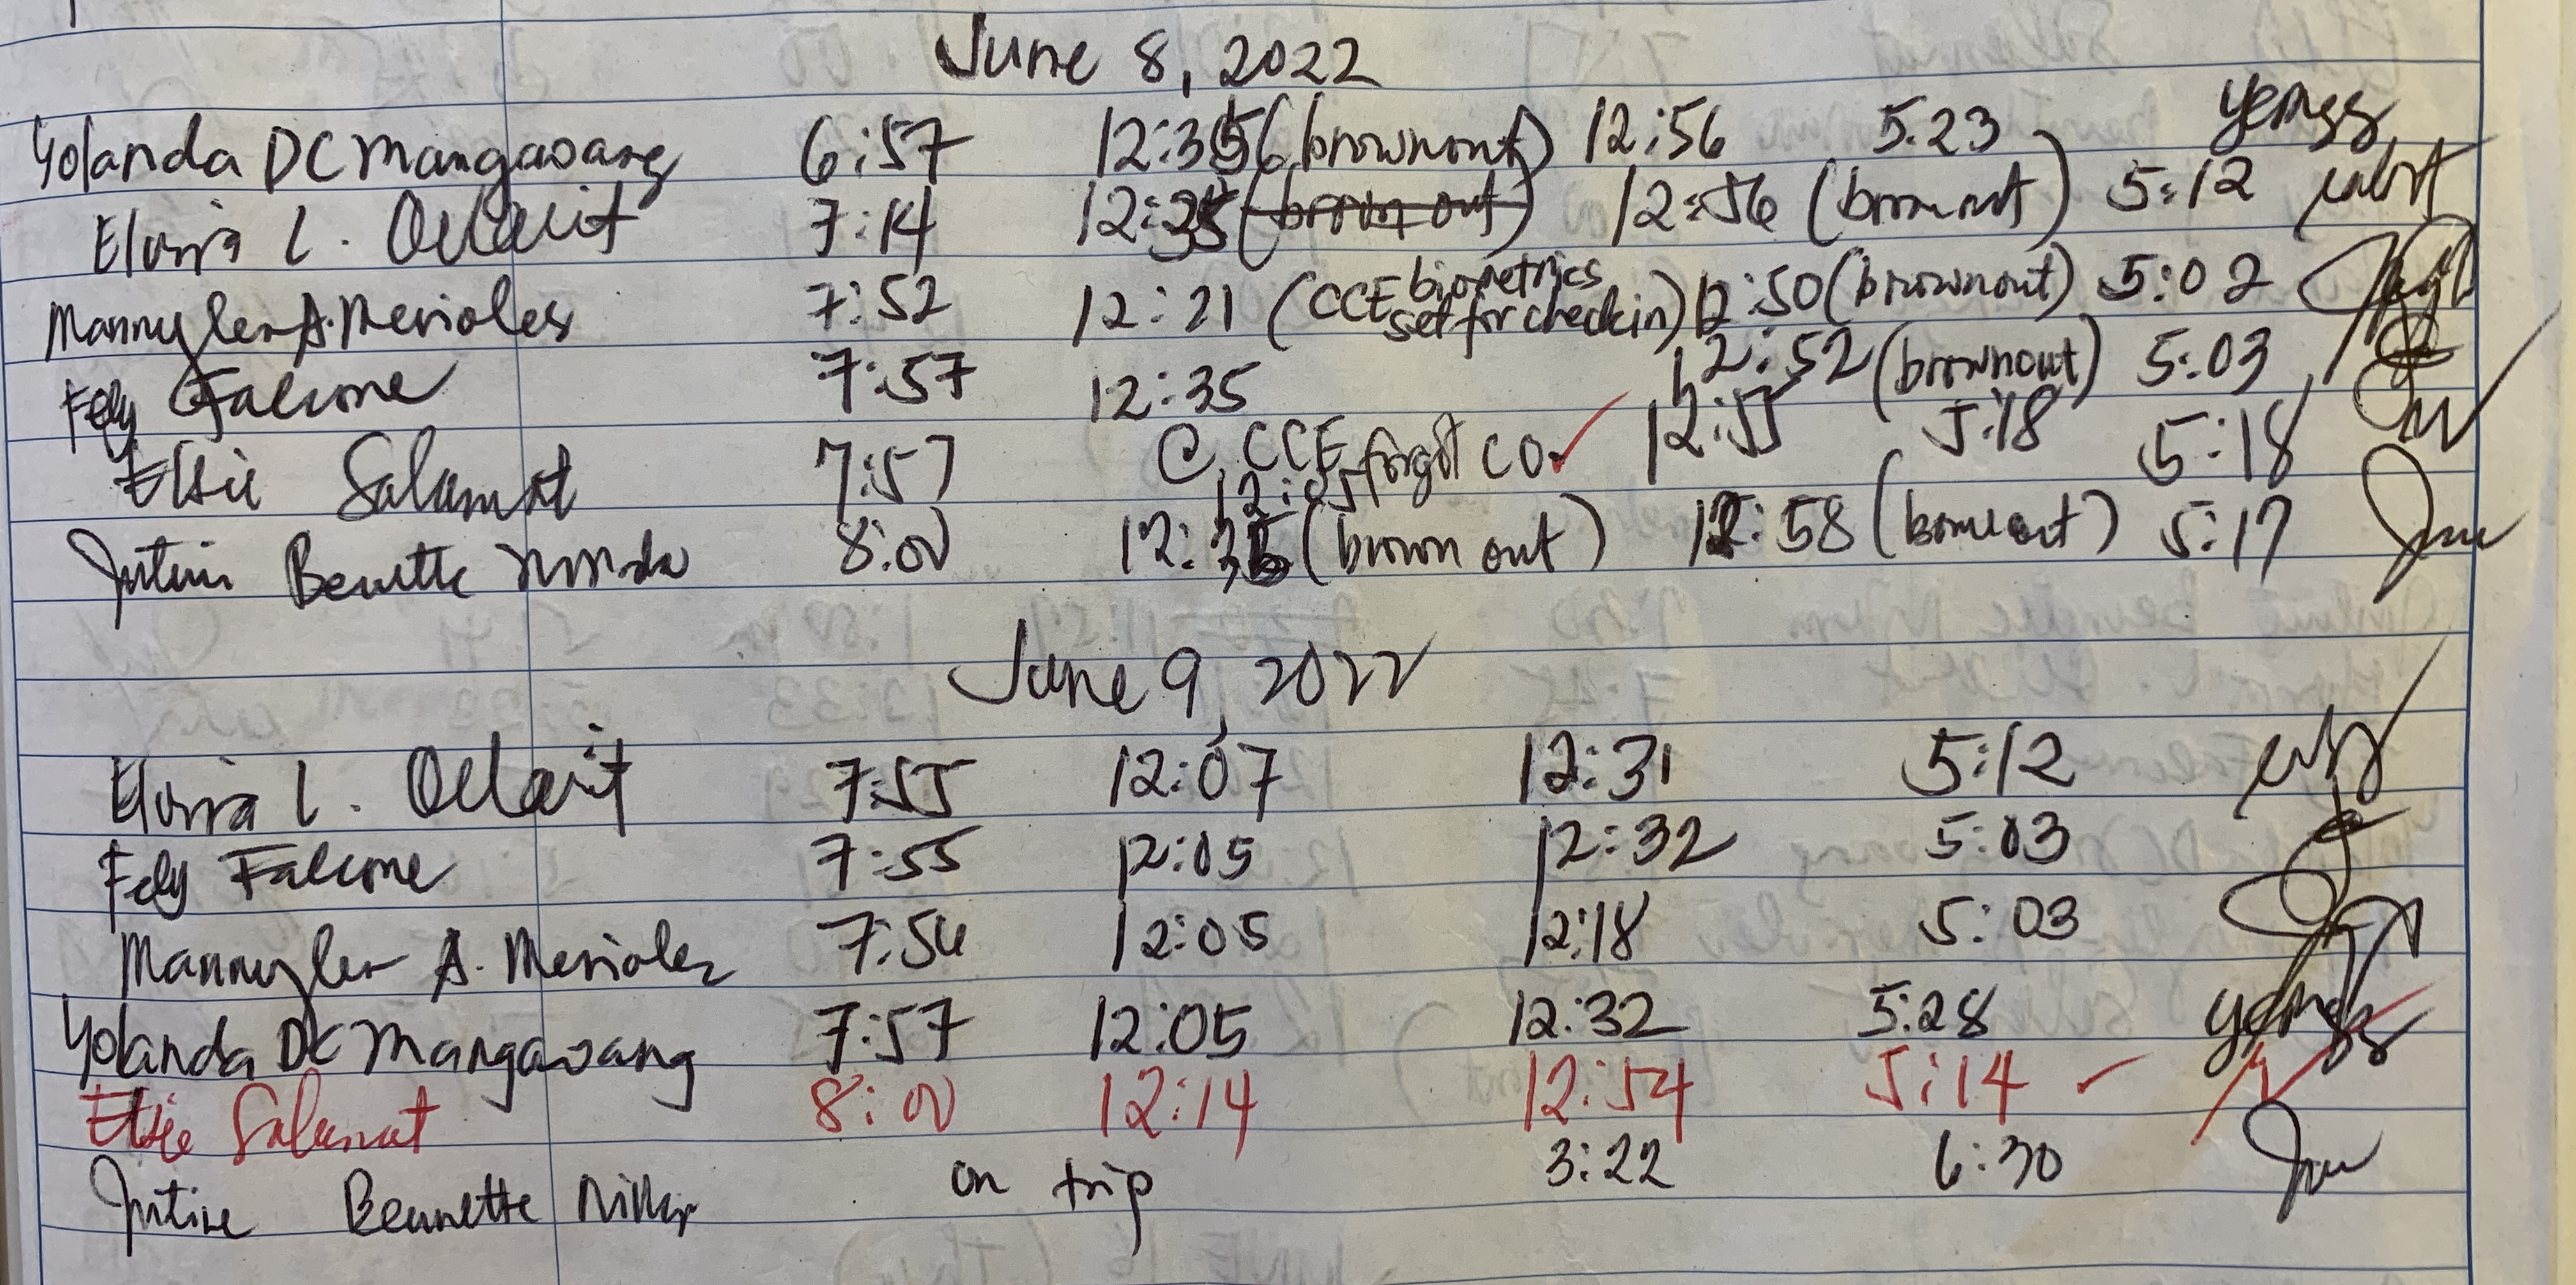 June 8, 2022
Yolanda DC Mangaoang 6:57 12:35 (brownout) 12:56 5.23 yemgs
Elvira L. 7:14 12:35 (brown out) 12:56 (brownout) 5:12
Mannylen A. Merioles 7:52 12:21 (CCE biometrics set for checkin) 12:50 (brownout) 5:02
Fely Falcone 7:57 12:35 12:52 (brownout) 5:03
Elsie Salamat 7:57 @ CCE forgot CO 12:05 12:55 5:18 5:18
Justine Bennette 8:00 12:35 (brown out) 12:58 (brownout) 5:17
June 9, 2022
Elvira L. 7:55 12:07 12:31 5:12
Fely Falcone 7:55 12:05 12:32 5:03
Mannylen A. Merioles 7:56 12:05 12:18 5:03
Yolanda DC Mangaoang 7:57 12:05 12:32 5:28 yemgs
Elsie Salamat 8:00 12:14 12:54 5:14
Justine Bennette on trip 3:22 6:30